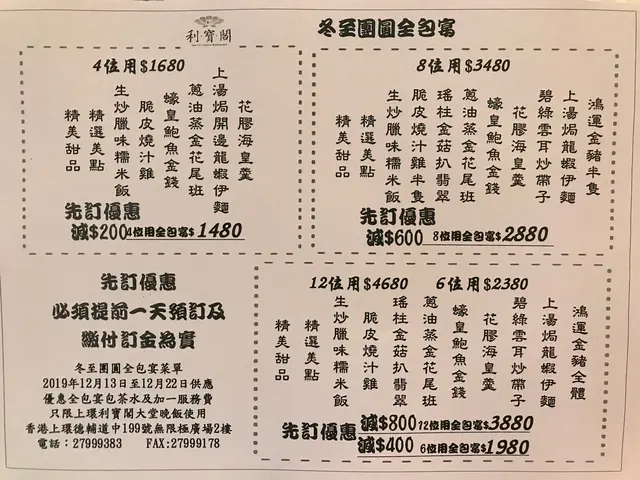 利寶閣
冬至團圓全包宴
4位用$1680
花膠海皇羹
上湯焗開邊龍蝦伊麵
蔥油蒸金花尾班
蠔皇鮑魚金錢
脆皮燒汁雞
生炒臘味糯米飯
精選美點
精美甜品
先訂優惠
減$200 4位用全包宴$1480
8位用$3480
鴻運金豬半隻
上湯焗龍蝦伊麵
碧綠雲耳炒帶子
花膠海皇羹
蠔皇鮑魚金錢
蔥油蒸金花尾班
瑤柱金菇扒翡翠
脆皮燒汁雞半隻
生炒臘味糯米飯
精選美點
精美甜品
先訂優惠
減$600 8位用全包宴$2880
先訂優惠
必須提前一天預訂及
繳付訂金為實
冬至團圓全包宴菜單
2019年12月13日至12月22日供應
優惠全包宴包茶水及加一服務費
只限上環利寶閣大堂晚飯使用
香港上環德輔道中199號無限極廣場2樓
電話：27999383 FAX:27999178
12位用$4680 6位用$2380
鴻運金豬全體
上湯焗龍蝦伊麵
碧綠雲耳炒帶子
花膠海皇羹
蠔皇鮑魚金錢
蔥油蒸金花尾班
瑤柱金菇扒翡翠
脆皮燒汁雞
生炒臘味糯米飯
精選美點
精美甜品
先訂優惠
減$800 12位用全包宴$3880
減$400 6位用全包宴$1980